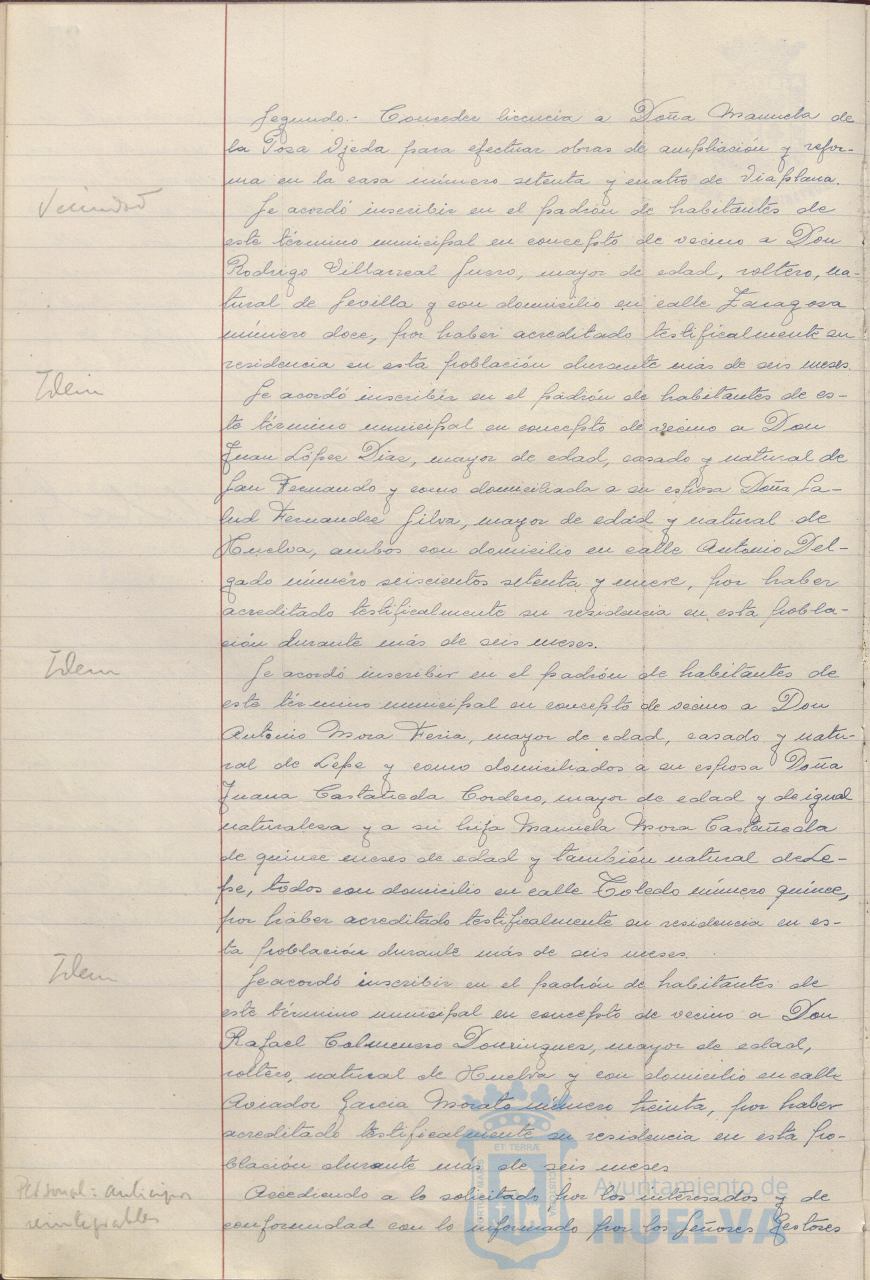 Segundo.- Conceder licencia a Doña Manuela de
la Posa Ojeda para efectuar obras de ampliación y refor-
ma en la casa número setenta y cuatro de Viaplana.
Vecindad
Se acordó inscribir en el padrón de habitantes de
este término municipal en concepto de vecino a Don
Rodrigo Villarreal Suero, mayor de edad, soltero, na-
tural de Sevilla y con domicilio en calle Zaragosa
número doce, por haber acreditado testificalmente su
residencia en esta población durante más de seis meses.
Idem
Se acordó inscribir en el padrón de habitantes de es-
te término municipal en concepto de vecino a Don
Juan López Diaz, mayor de edad, casado y natural de
San Fernando y como domiciliada a su esposa Doña Sa-
lud Fernandez Silva, mayor de edad y natural de
Huelva, ambos con domicilio en calle Antonio Del-
gado número seiscientos setenta y nueve, por haber
acreditado testificalmente su residencia en esta pobla-
ción durante más de seis meses.
Idem
Se acordó inscribir en el padrón de habitantes de
este término municipal en concepto de vecino a Don
Antonio Mora Feria, mayor de edad, casado y natu-
ral de Lepe y como domiciliados a su esposa Doña
Juana Castañeda Cordero, mayor de edad y de igual
naturaleza y a su hija Manuela Mora Castañeda
de quince meses de edad y también natural de Le-
pe, todos con domicilio en calle Toledo número quince,
por haber acreditado testificalmente su residencia en es-
ta población durante más de seis meses.
Idem
Se acordó inscribir en el padrón de habitantes de
este término municipal en concepto de vecino a Don
Rafael Colmenero Dominguez, mayor de edad,
soltero, natural de Huelva y con domicilio en calle
Aviador Garcia Morato número treinta, por haber
acreditado testificalmente su residencia en esta po-
blación durante más de seis meses
Personal: anticipos
reintegrables
Accediendo a lo solicitado por los interesados y de
conformidad con lo informado por los Señores Gestores
Ayuntamiento de
HUELVA